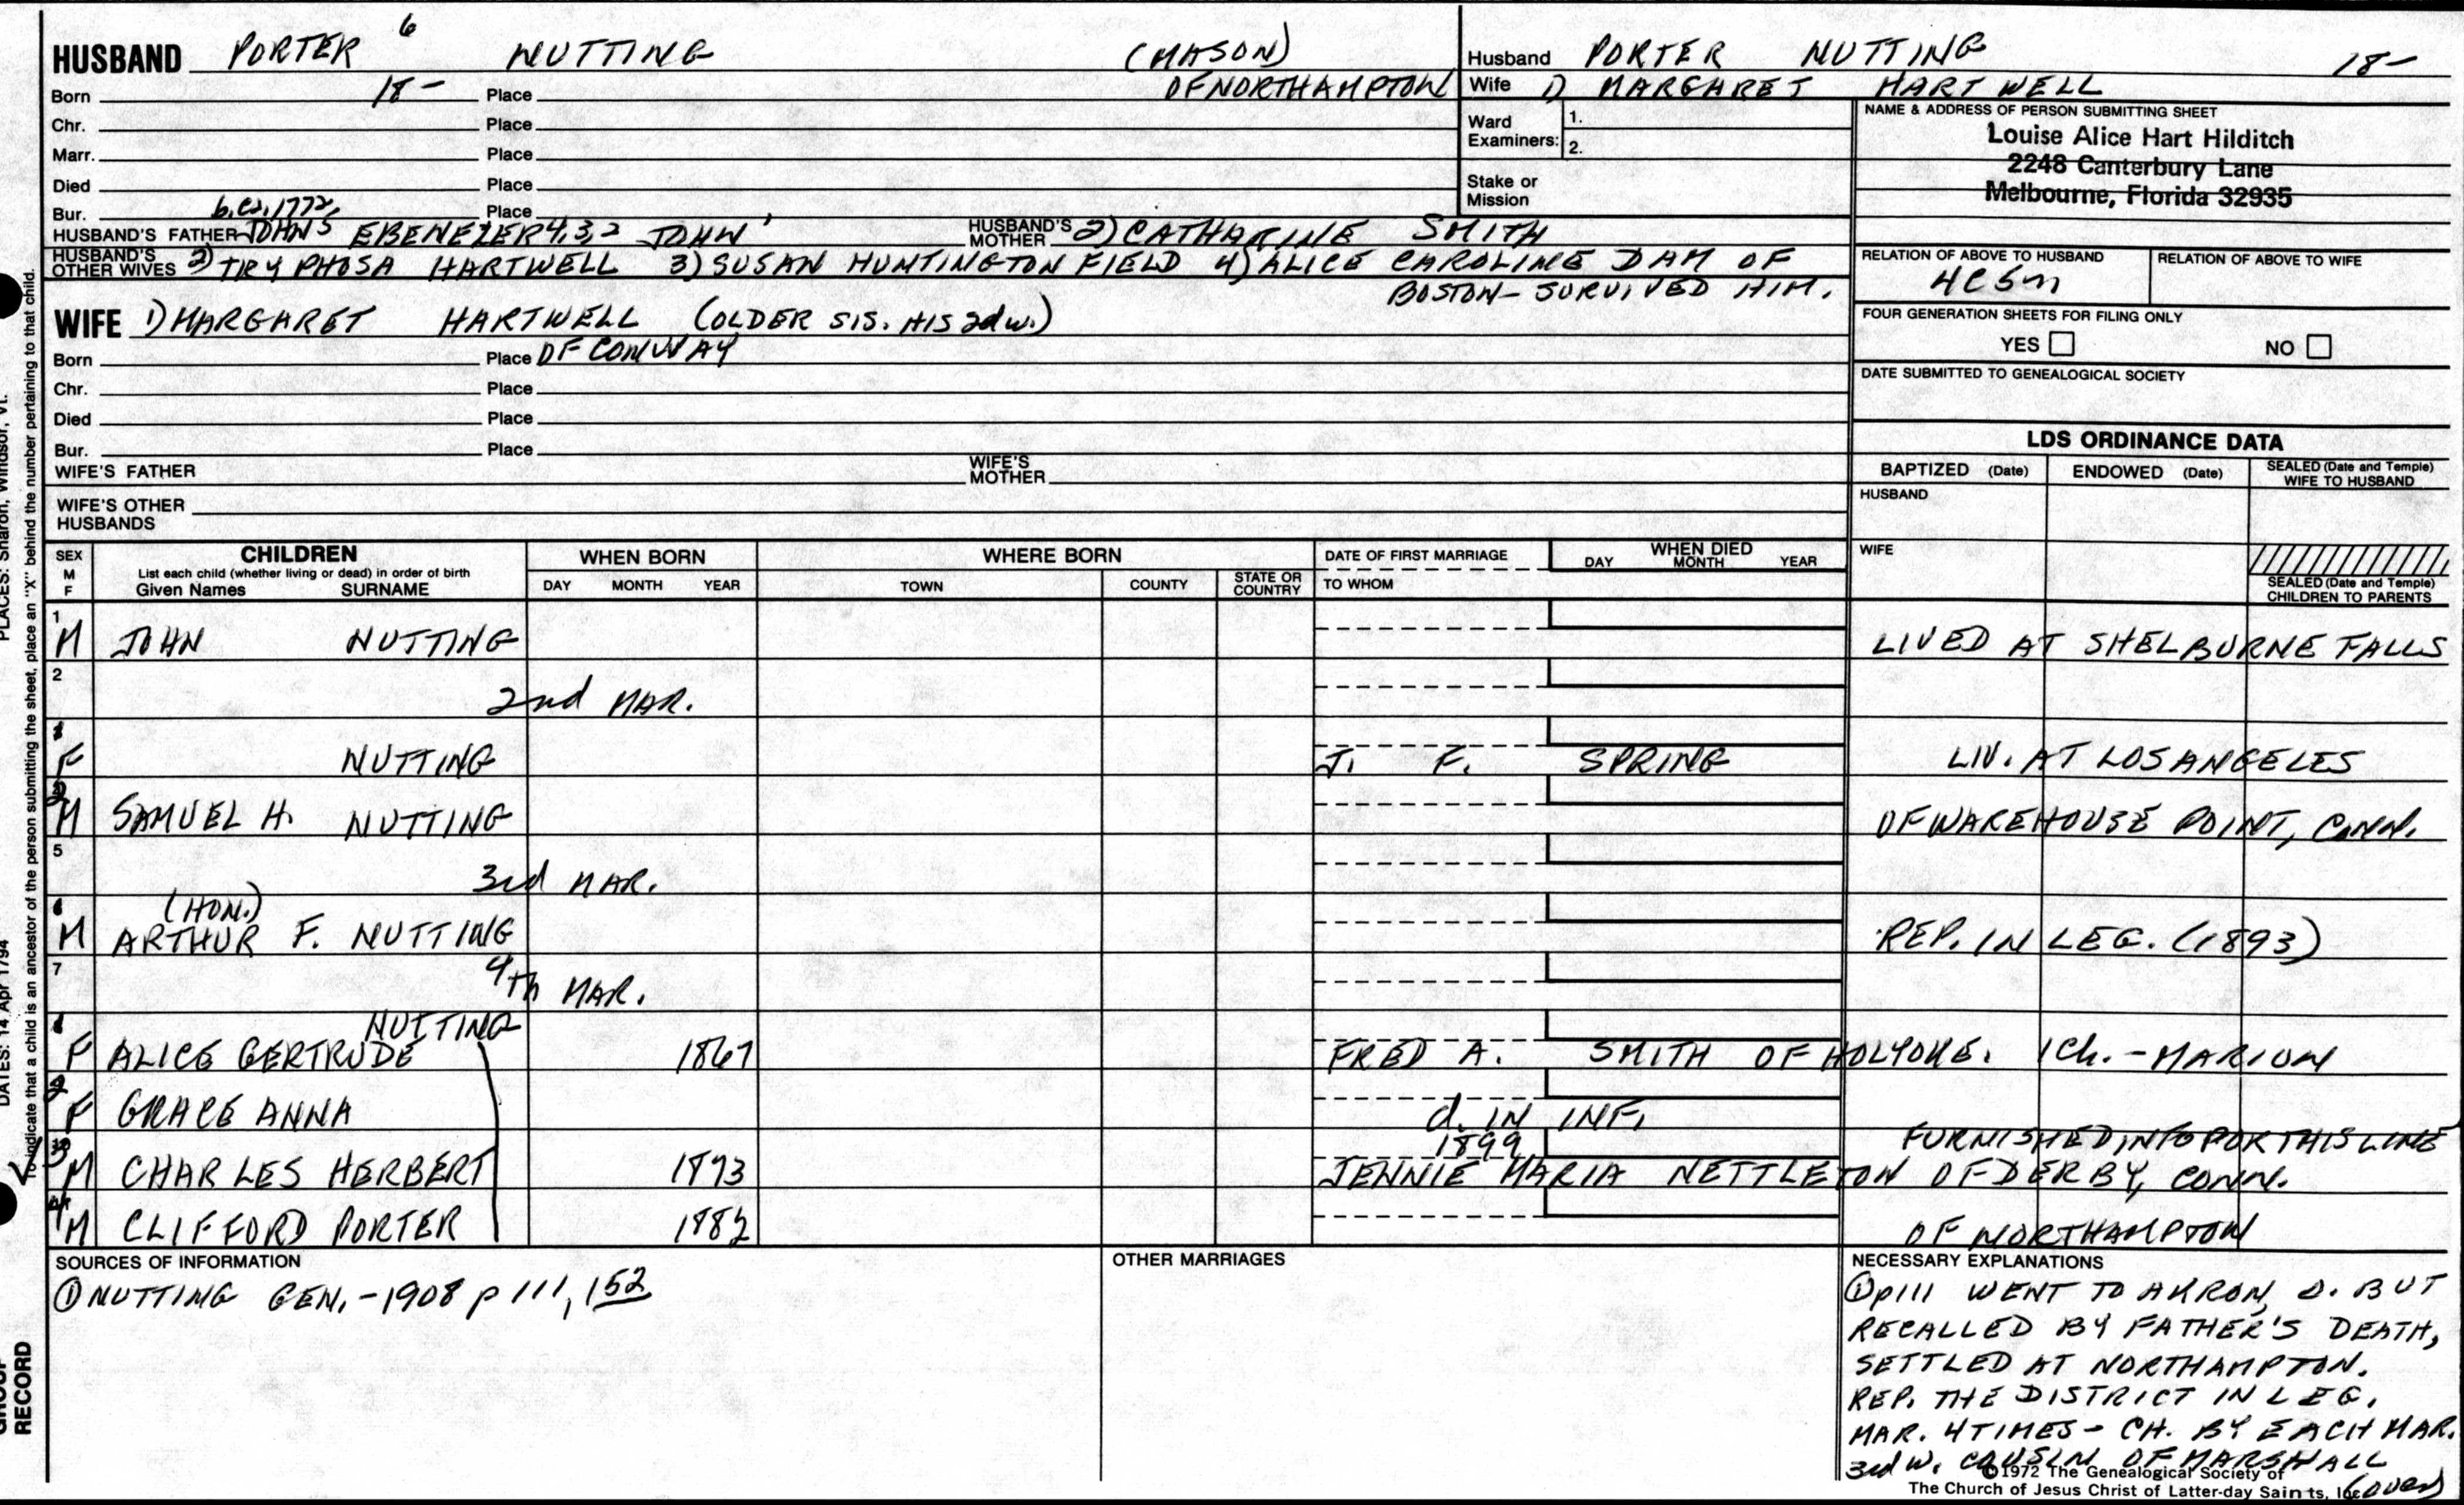 HUSBAND PORTER 6 NUTTING (MASON)
Born 18- Place OF NORTHAMPTON
Chr. Place
Marr. Place
Died Place
Bur. Place
b. ca. 1772,
HUSBAND'S FATHER JOHN 5 EBENEZER 4,3,2 JOHN ' HUSBAND'S MOTHER 2) CATHARINE SMITH
HUSBAND'S OTHER WIVES 2) TRYPHOSA HARTWELL 3) SUSAN HUNTINGTON FIELD 4) ALICE CAROLINE DAM OF
BOSTON - SURVIVED HIM.
WIFE 1) MARGARET HARTWELL (OLDER SIS. HIS 2d w.)
Born Place OF CONWAY
Chr. Place
Died Place
Bur. Place
WIFE'S FATHER WIFE'S MOTHER
WIFE'S OTHER HUSBANDS
Husband PORTER NUTTING 18-
Wife 1) MARGARET HARTWELL
Ward Examiners: 1.
2.
Stake or Mission
NAME & ADDRESS OF PERSON SUBMITTING SHEET
Louise Alice Hart Hilditch
2248 Canterbury Lane
Melbourne, Florida 32935
RELATION OF ABOVE TO HUSBAND RELATION OF ABOVE TO WIFE
4C5m
FOUR GENERATION SHEETS FOR FILING ONLY
YES NO
DATE SUBMITTED TO GENEALOGICAL SOCIETY
LDS ORDINANCE DATA
BAPTIZED (Date) ENDOWED (Date) SEALED (Date and Temple) WIFE TO HUSBAND
HUSBAND
WIFE
SEALED (Date and Temple) CHILDREN TO PARENTS
SEX M F CHILDREN WHEN BORN WHERE BORN DATE OF FIRST MARRIAGE WHEN DIED
List each child (whether living or dead) in order of birth
Given Names SURNAME DAY MONTH YEAR TOWN COUNTY STATE OR COUNTRY TO WHOM DAY MONTH YEAR
1 M JOHN NUTTING LIVED AT SHELBURNE FALLS
2 2nd MAR.
1 F NUTTING J. F. SPRING LIV. AT LOS ANGELES
2 M SAMUEL H. NUTTING OF WAREHOUSE POINT, CONN.
5 3rd MAR.
(HON.)
M ARTHUR F. NUTTING REP. IN LEG. (1893)
7 4th MAR.
NUTTING
1 F ALICE GERTRUDE 1867 FRED A. SMITH OF HOLYOKE. 1 Ch. - MARION
2 F GRACE ANNA d. IN INF.
1899 FURNISHED INFO FOR THIS LINE
3 M CHARLES HERBERT 1873 JENNIE MARIA NETTLETON OF DERBY, CONN.
4 M CLIFFORD PORTER 1882 OF NORTHAMPTON
SOURCES OF INFORMATION
① NUTTING GEN. - 1908 p 111, 152
OTHER MARRIAGES
NECESSARY EXPLANATIONS
① p111 WENT TO AKRON, O. BUT
RECALLED BY FATHER'S DEATH,
SETTLED AT NORTHAMPTON.
REP. THE DISTRICT IN LEG.
MAR. 4 TIMES - CH. BY EACH MAR.
3rd W. COUSIN OF MARSHALL
(over)
© 1972 The Genealogical Society of
The Church of Jesus Christ of Latter-day Saints, Inc.
PLACES: Sharon, Windsor, Vt.
DATES: 14 Apr 1794
To indicate that a child is an ancestor of the person submitting the sheet, place an "X" behind the number pertaining to that child.
GROUP
RECORD